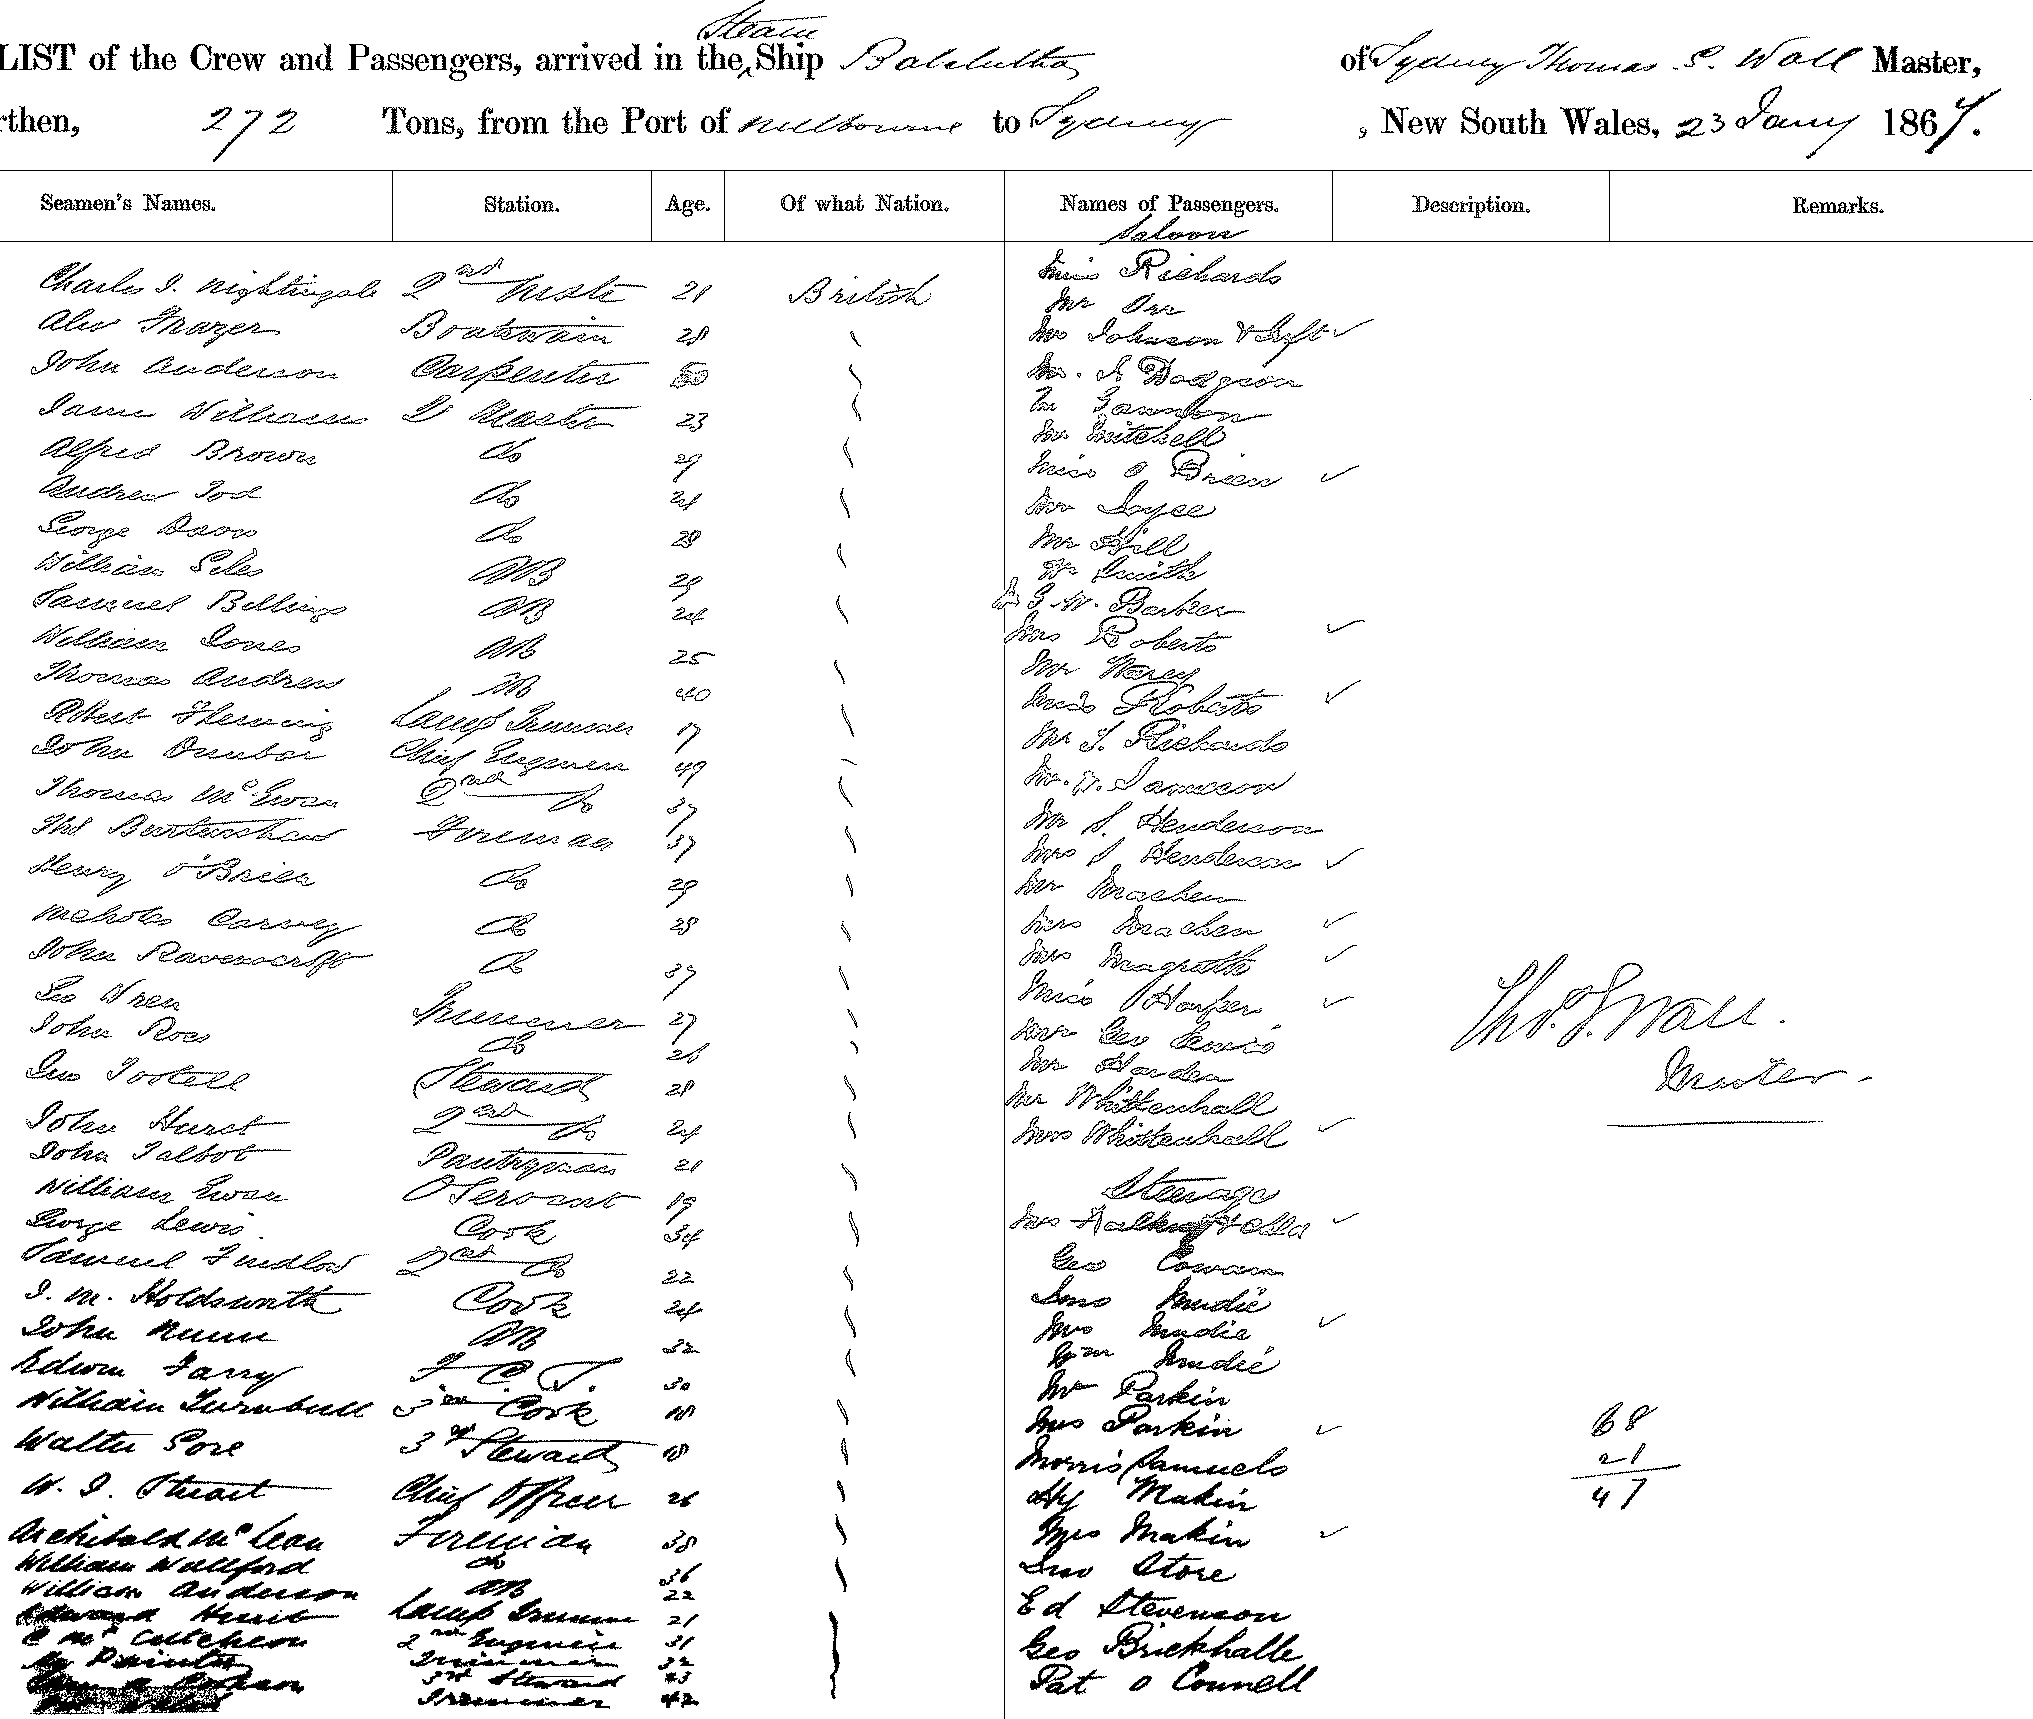 Steam
LIST of the Crew and Passengers, arrived in the Ship Balclutha of Sydney Thomas S. Wall Master,
rthen, 272 Tons, from the Port of Melbourne to Sydney, New South Wales, 23 Jany 1867.
Seamen's Names. Station. Age. Of what Nation. Names of Passengers. Description. Remarks.
Saloon
Charles J. Nightingale 2nd Mate 21 British Miss Richards
Mr Orr
Alex Frazer Boatswain 28 Mrs Johnson &
John Anderson Carpenter Mr. J Dodgson
James Williams 2 Master 23 Mr Gannon
Mr Mitchell
Alfred Brown do 29 Miss O Brien
Andrew Tod do 24 Mr Joyce
George Davis do 28 Mr Hill
William Giles AB 29 Mr Smith
Samuel Billings AB 24 G. W. Barker
William Jones AB 25 Mrs Roberts
Thomas Andrew AB 40 Mr
Miss Roberts
Robert Fleming Lamp Trimmer 17 Mr S. Richards
John Dunbar Chief Engineer 49 Jamieson
Thomas McEwan 2nd do 37 Mr S. Henderson
Thos Burtenshaw Fireman 37 Mrs S Henderson
Henry O'Brien do 29 Mr Machen
Nicholas Carvey do 28 Mrs Machen
John Ravenscroft do 37 Mrs Magrath
Geo Wren Trimmer 27 Miss Harper
John Ross do 26 Mr Geo Lewis
Mr Harden
Jno Tootell Steward 28 Mr Whittenhall
John Hurst 2nd do 24 Mrs Whittenhall
John Talbot Pantryman 21
Steerage
William Ewan O Servant 19
George Lewis Cook 34 Mrs
Samuel Findlow 2nd do 22 Geo Cowan
J. M. Holdsworth Cook 24 Jno Mudie
John Nunn AB 32 Mrs Mudie
Wm Mudie
Edwin Farry F. C. S. 30 Mr Parkin
William Turnbull 3rd Cook 18 Mrs Parkin
Walter Gore 3rd Steward 18 Morris Samuels
W. J. Stuart Chief Officer 26 Hy Makin
Archibald McLean Fireman 38 Mrs Makin
William Wallford do 36 Jno Store
William Anderson AB 22
Edward Lamp Trimmer 21 Ed Stevenson
C McCutcheon 2nd Engineer 31 Geo Brickhalle
Painter Trimmer 32
3rd Steward 43 Pat O Connell
Trimmer 42
Thos. S. Wall.
Master.
68
21
47